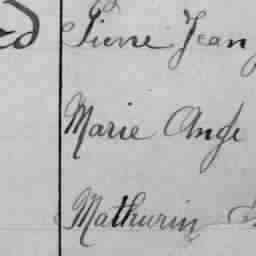 Pierre Jean
Marie Ange
Mathurin